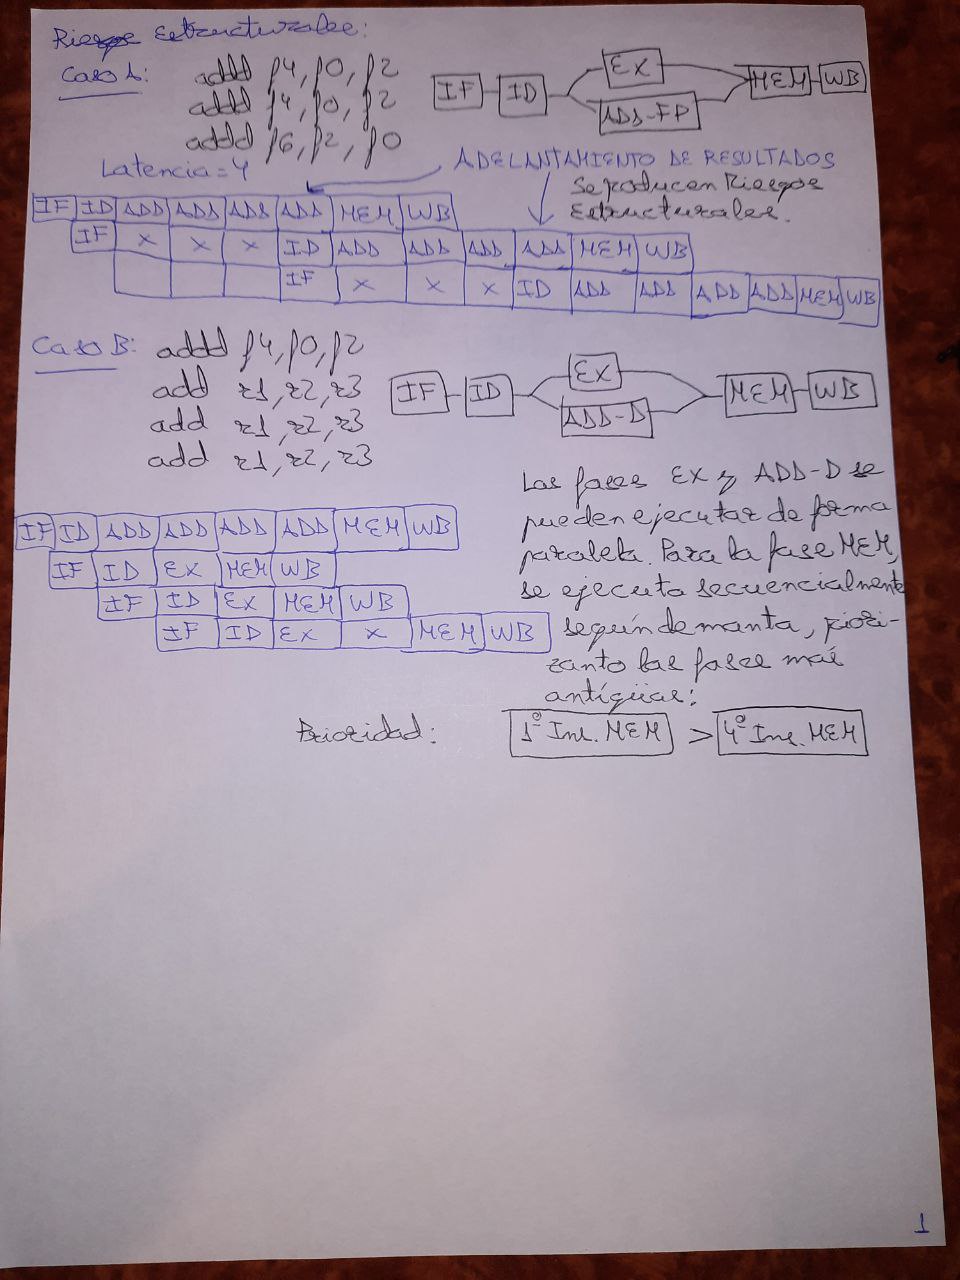 Riesgos Estructurales:
Caso A:
addd f4, f0, f2
addd f4, f0, f2
addd f6, f2, f0
IF ID EX ADD-FP MEM WB
Latencia = 4
ADELANTAMIENTO DE RESULTADOS
Se producen Riesgos
Estructurales.
IF ID ADD ADD ADD ADD MEM WB
IF x x x ID ADD ADD ADD ADD MEM WB
IF x x x ID ADD ADD ADD ADD MEM WB
Caso B:
addd f4, f0, f2
add r1, r2, r3
add r1, r2, r3
add r1, r2, r3
IF ID EX ADD-D MEM WB
IF ID ADD ADD ADD ADD MEM WB
IF ID EX MEM WB
IF ID EX MEM WB
IF ID EX x MEM WB
Las fases EX y ADD-D se
pueden ejecutar de forma
paralela. Para la fase MEM,
se ejecuta secuencialmente
según demanta, priori-
zanto las fases más
antígüas:
Prioridad: 1º Ins. MEM > 4º Ins. MEM
1